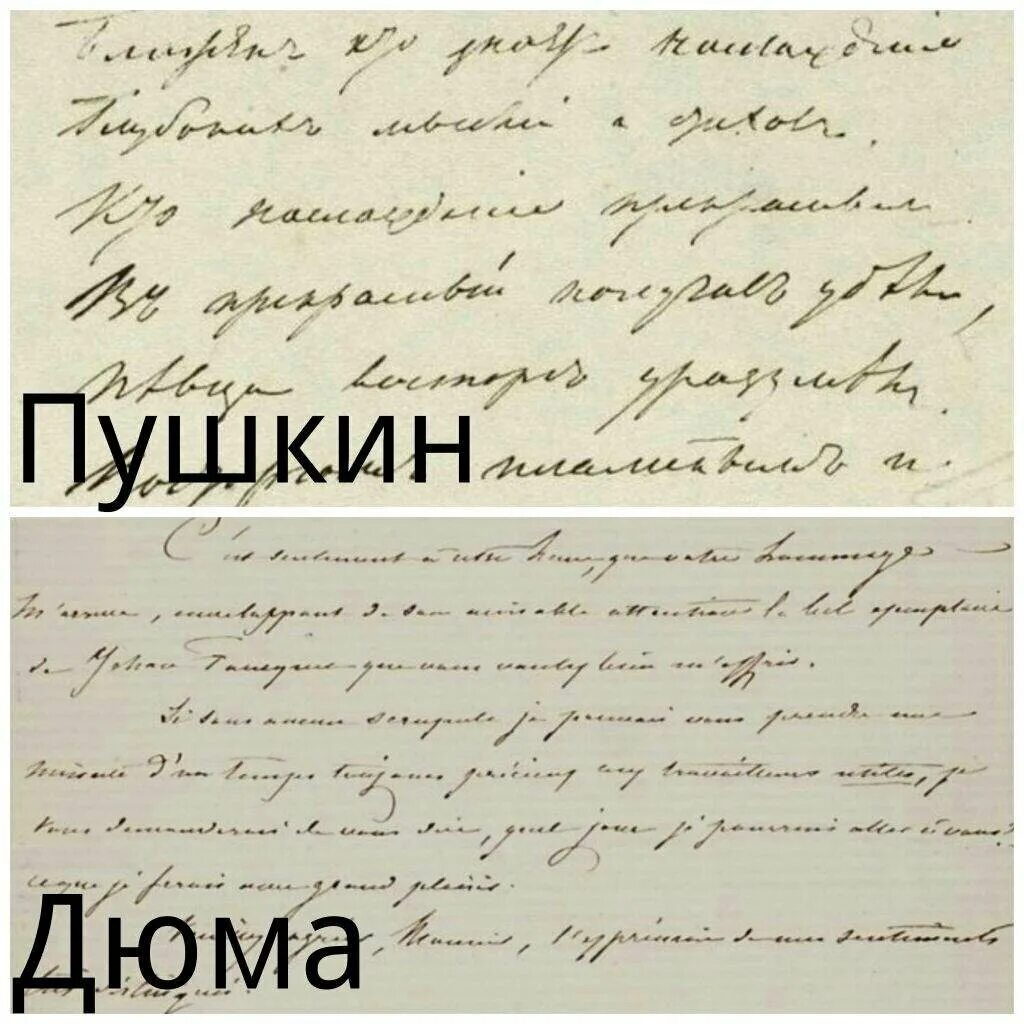 Блаженъ кто знаетъ наслажденiе
Глубокихъ мыслей и стиховъ.
Кто наслажденiе прекраснымъ
Въ прекрасный получилъ удѣлъ,
Пѣвца восторгъ уразумѣлъ.
Восторгомъ пламеннымъ и
Пушкин
C'est seulement à que votre hommage
m'arrive, enveloppant de son aimable attention le bel exemplaire
de Johan que vous voulez bien m'offrir.
Si sans aucun scrupule je pouvais vous prendre une
minute d'un temps toujours précieux aux travailleurs utiles, je
vous demanderais de vous dire, quel jour je pourrais aller à vous?
ce que je ferais avec grand plaisir.
agréer, Monsieur, l'expression de mes sentiments
très distingués.
Дюма